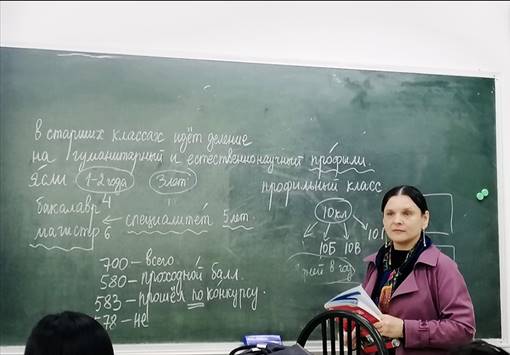 в старших классах идёт деление
на гуманитарный и естественнонаучный профили.
ясли 1-2 года 3 лет
профильный класс
бакалавр 4
специалитет 5 лет.
магистр 6
10 кл
10Б 10В 10
700 – всего
580 – проходной балл.
583 – прошёл по конкурсу.
578 – не